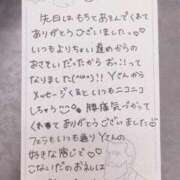 先日はもちてあそんでくれて
ありがとうございました。
いつもよりちょい遅めからの
おさそいだったからおっ!って
なりました(^^)!! Yさんから
メッセージくると いつもニコニコ
しちゃう♡♡ 腰痛気づかって
くれてありがとうございました
フェラもいつも通りYさんの
好きな感じで♡
こないだのお礼に